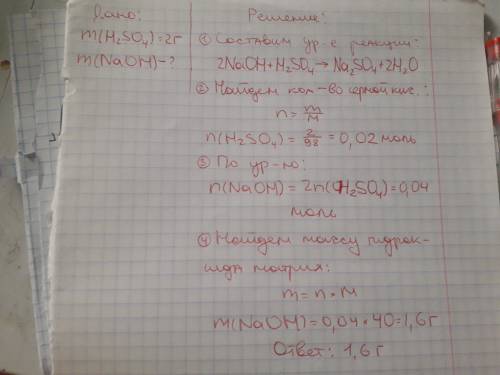 Дано:
m(H₂SO₄)=2г
m(NaOH)-?
Решение:
① Составим ур-е реакции:
2NaOH+H₂SO₄→Na₂SO₄+2H₂O
② Найдем кол-во серной кис.:
n=m/M
n(H₂SO₄)=2/98=0,02 моль
③ По ур-ю:
n(NaOH)=2n(H₂SO₄)=0,04
моль
④ Найдем массу гидрок-
сида натрия:
m=n•M
m(NaOH)=0,04•40=1,6г
Ответ: 1,6г